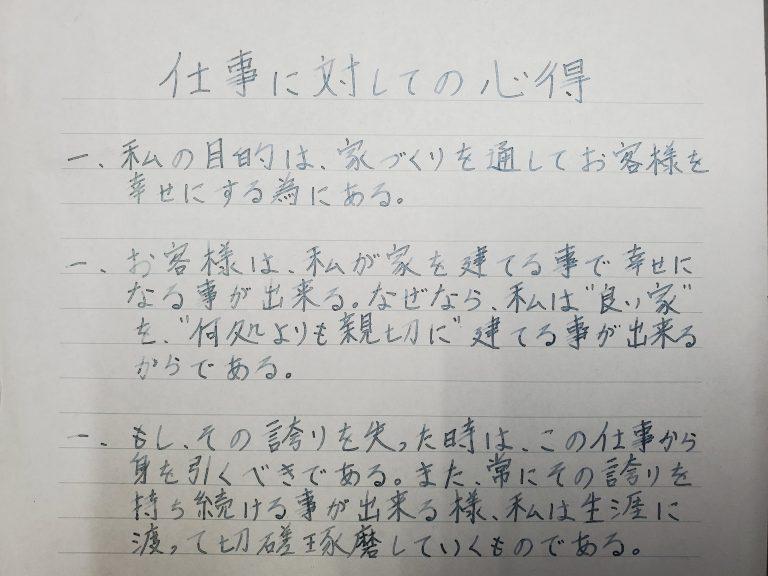 仕事に対しての心得
一、私の目的は、家づくりを通してお客様を
幸せにする為にある。
一、お客様は、私が家を建てる事で幸せに
なる事が出来る。なぜなら、私は"良い家"
を、"何処よりも親切に"建てる事が出来る
からである。
一、もし、その誇りを失った時は、この仕事から
身を引くべきである。また、常にその誇りを
持ち続ける事が出来る様、私は生涯に
渡って切磋琢磨していくものである。